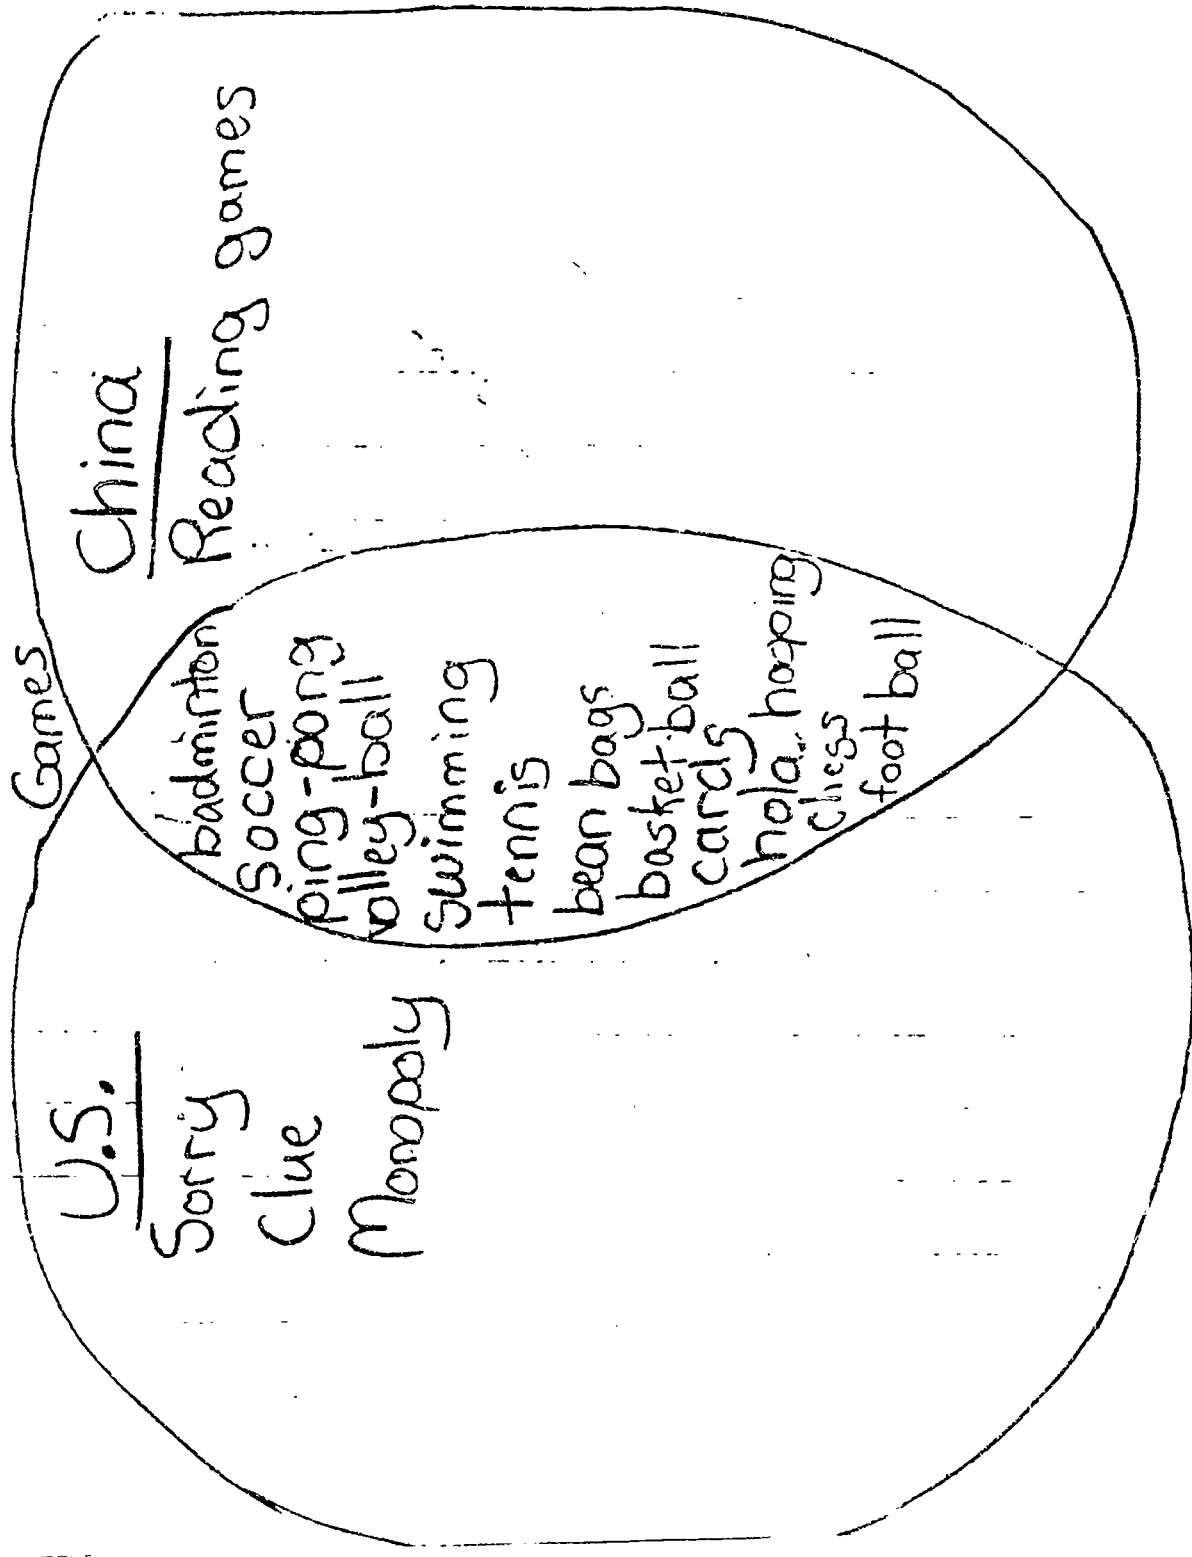 Games
U.S.
Sorry
Clue
Monopoly
badminton
soccer
ping-pong
volley-ball
swimming
tennis
bean bags
basket ball
cards
hola hooping
chess
foot ball
China
Reading games